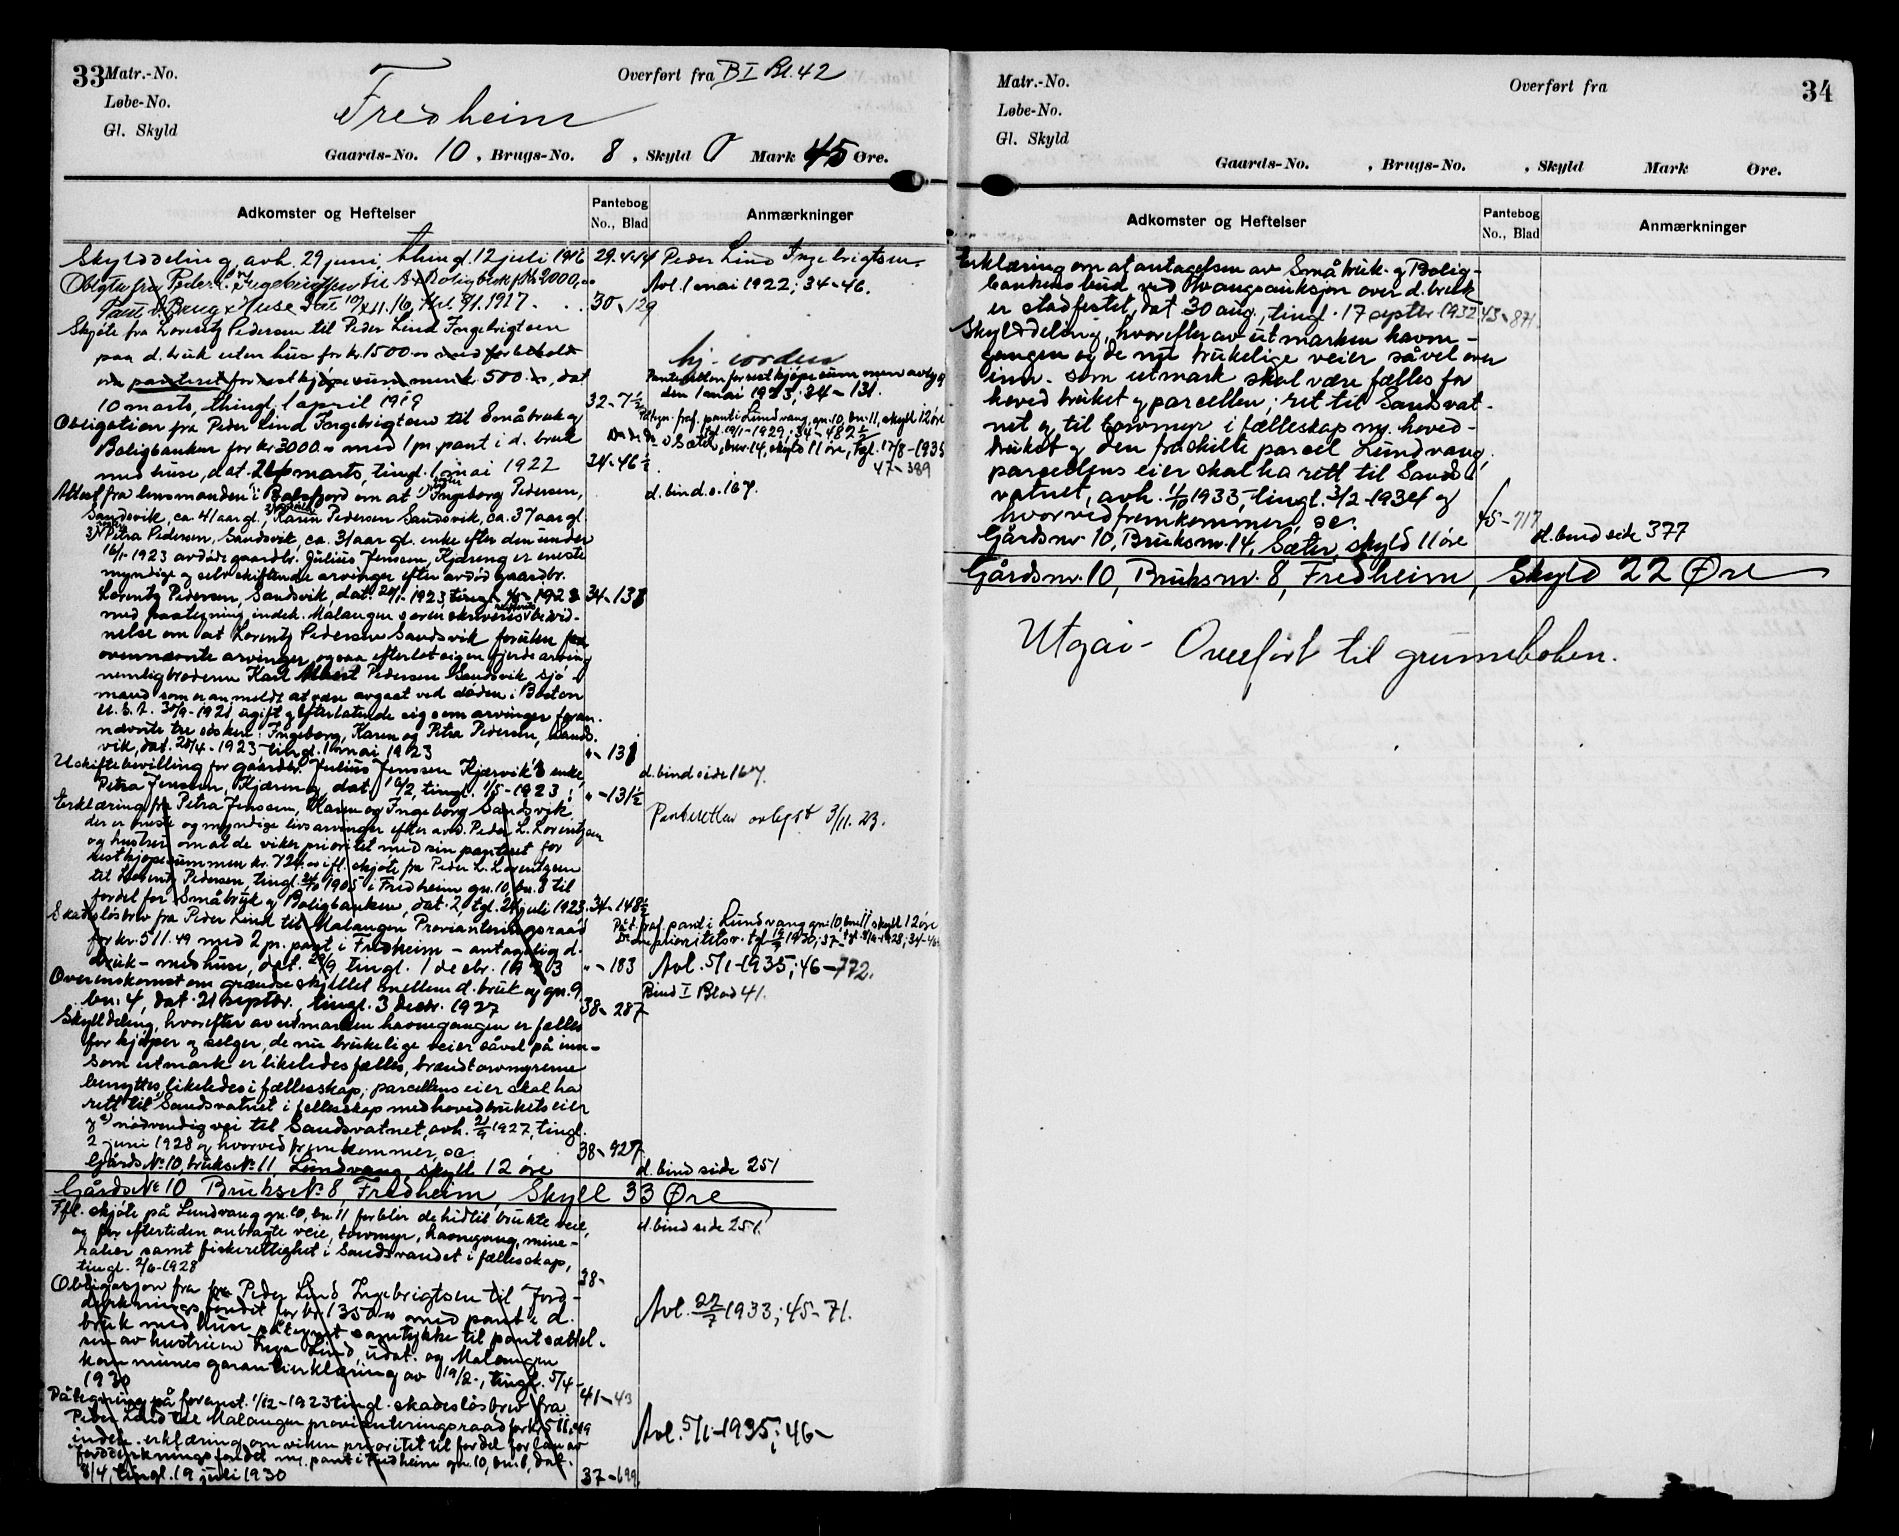 33 Matr.-No. Overført fra B I Bl. 42
Løbe-No.
Gl. Skyld
Fredheim
Gaards-No. 10, Brugs-No. 8, Skyld 0 Mark 45 Øre.
Adkomster og Heftelser
Pantebog No., Blad
Anmærkninger
Skylddeling, avh. 29 juni thingl. 12 juli 1916 29. 444 Peder Lind Ingebrigtsen.
Avl. 1 mai 1922; 34-46.
30-129
Skjøte fra Lorentz Pedersen til Peder Lind Ingebrigtsen
paa d. bruk uten hus for kr. 1500.00 med forbeholdt
panteret for restkjøpesummen kr. 500.00, dat
10 marts, thingl. 1 april 1919 32-7½
hj. jorden
Panteretten for restkjøpesummen avlyst
den 1 mai 1923; 34-131.
Obligation fra Peder Lind Ingebrigtsen til Småbruk og
Boligbanken for kr. 3000.00 med 1 pr. pant i d. bruk
med huse, dat. marts, tingl. 1 mai 1922 34-46½
fraf. pant i Lundvang, gn. 10, bn. 11, skyld 12 øre
Sæter, bnr. 14, skyld 11 øre, tgl. 17/8-1935
47-389
Attest fra lensmanden i Balsfjord om at Ingeborg Pedersen,
Sandsvik, ca. 41 aar gl., Karen Pedersen Sandsvik, ca. 37 aar gl.
Petra Pedersen, Sandsvik, ca. 31 aar gl. enke efter den under
16/1-1923 avdøde gaardbr. Julius Jenssen, Kjæreng er eneste
myndige og selvskiftende arvinger efter avdød gaardbr.
Lorentz Pedersen, Sandsvik, dat. 1923, tingl. 1923 34-131
d. bind s. 167.
med paategning indeh. Malangen sorenskriveris bevid-
nelse om at Lorentz Pedersen Sandsvik foruten
ovennævnte arvinger ogsaa efterlot sig en fjerde arving
nemlig broderen Karl Pedersen Sandsvik, sjø-
mand som er anmeldt at være avgaat ved døden i Boston
U.S.A. 30/9-1921, ugift og efterlatende sig som arvinger foran-
nævnte tre søsken: Ingeborg, Karen og Petra Pedersen, Sands-
vik, dat. 28/4-1923 tingl. 1 mai 1923 "-131
Uskiftebevilling for gaardbr. Julius Jenssen Kjærvik's enke,
Petra Jenssen, Kjæreng, dat 16/2, tingl. 1/5-1923: "-131½
d. bind side 167.
Erklæring fra Petra Jenssen, Karen og Ingeborg Sandsvik,
der er eneste og myndige livsarvinger efter avd. Peder L. Lorentzen
og hustru om at de viker prioritet med sin panteret for
restkjøpesummen kr. 724.00 ifl. skjøte fra Peder L. Lorentzen
til Lorentz Pedersen, tingl. 1905 i Fredheim gn. 10, bn. 8 til
fordel for Småbruk og Boligbanken, dat. 2, tgl. 21 juli 1923. 34-148½
Panteretten avlyst 3/11. 23.
Skadesløsbrev fra Peder Lind til Malangen Provianteringsraad
for kr. 511.49 med 2 pr. pant i Fredheim - antagelig d.
bruk - med huse, dat. 29/9, tingl. 1 decbr. 1923 "-183
fraf. pant i Lundvang gn. 10, bn. 11 skyld 12 øre
Avl. 5/1-1935; 46-772.
Overenskomst om grændseskjellet mellem d. bruk og gn. 9,
bn. 4, dat. 21 septbr., tingl. 3 decbr. 1927 38-287
Bind I Blad 41.
Skylddeling, hvorefter av utmarken havnegangen er fælles
for kjøper og selger, de nu brukelige veier såvel på inn-
som utmark er likeledes fælles, brændtorvmyrene
benyttes likeledes i fællesskap; parcellens eier skal ha
rett til Sandsvatnet i fellesskap med hovedbrukets eier
og nødvendig vei til Sandsvatnet, avh. 2/9 1927, tingl.
2 juni 1928 og hvorved fremkommer, se 38-927
Gårds No 10, bruks No 11 Lundvang skyld 12 øre d. bind side 251
Gårds No 10 Bruks No 8 Fredheim, Skyld 33 Øre
Ifl. skjøte på Lundvang gn. 10, bn. 11 forblir de hidtil brukte veie,
og for eftertiden anbragte veie, torvmyr, havnegang, mine-
ralier samt fiskerettighet i Sandsvandet i fællesskap,
tingl. 2/6-1928 38-
d. bind side 251.
Obligasjon fra Peder Lind Ingebrigtsen til Jord-
dyrkningsfondet for kr. 1350.00 med pant i d.
bruk med huse påtegnet samtykke til pantsættel-
sen av hustruen Inga Lind, udat. og Malangen
kommunes garantierklæring av 19/2-, tingl. 5/4-
1930 41-43
Avl. 27/7 1933; 45-71.
Påtegning på foranst. 1/12-1923 tingl. skadesløsbrev fra
Peder Lind til Malangen provianteringsraad for kr. 511.49
indeh. erklæring om viken prioritet til fordel for lån av
jorddyrkningsfondet m. pant i Fredheim gn. 10, bn. 8, dat.
8/4, tingl. 19 juli 1930 37-699.
Avl. 5/1-1935; 46-
Matr.-No. Overført fra 34
Løbe-No.
Gl. Skyld
Gaards-No. , Brugs-No. , Skyld Mark Øre.
Adkomster og Heftelser
Pantebog No., Blad
Anmærkninger
Erklæring om at antagelsen av Småbruk- og Bolig-
bankens bud ved tvangsauksjon over d. bruk
er stadfestet, dat 30 aug., tingl. 17 septbr 1932 43-871.
Skylddeling, hvorefter av utmarken havne-
gangen og de nye brukelige veier såvel over
inn- som utmark skal være fælles for
hovedbruket og parcellen; ret til Sandsvat-
net og til torvmyr i fælleskap m. hoved-
bruket og den fraskilte parcel Lundvang,
parcellens eier skal ha rett til Sands-
vatnet, avh. 1933, tingl. 3/2-1934 og
hvorved fremkommer, se: 45-717
Gårdsnr. 10, Bruksnr. 14, Sæter, skyld 11 øre d. bind side 377
Gårdsnr. 10, Bruksnr. 8, Fredheim, Skyld 22 Øre
Utgår - Overført til grunnboken.